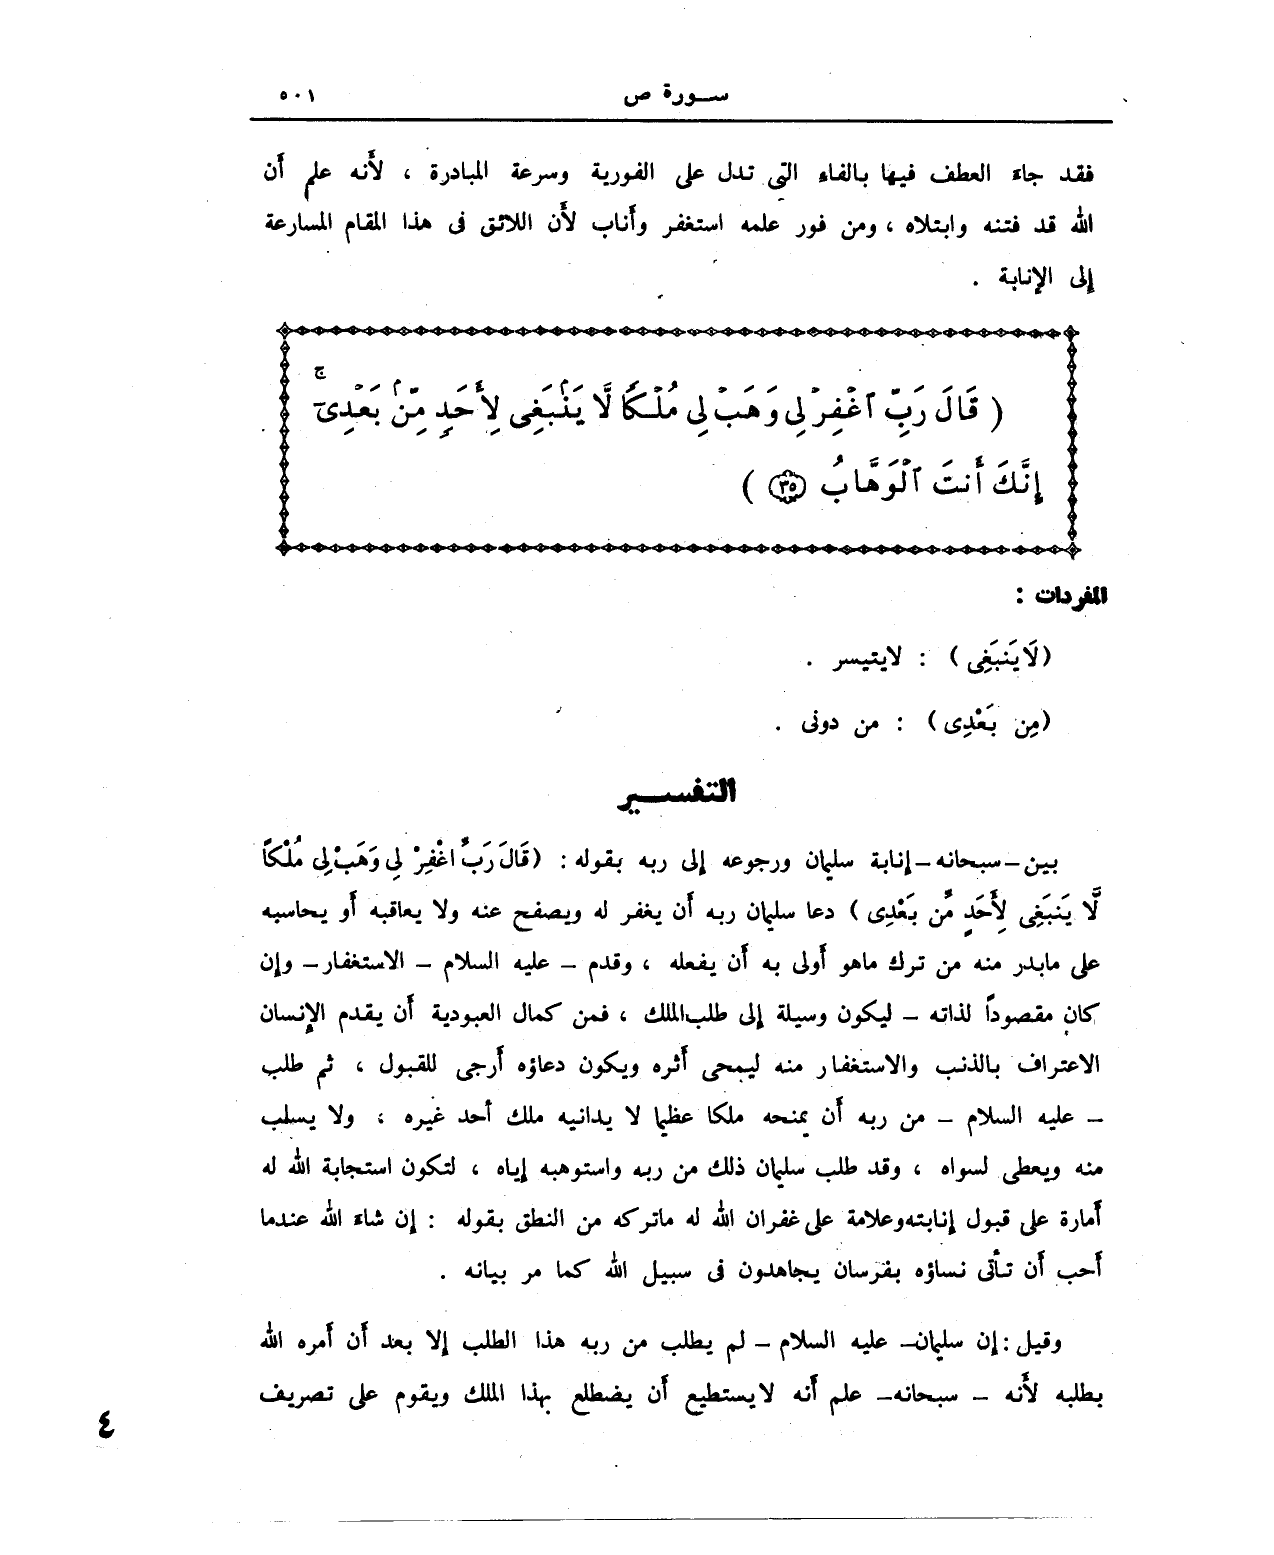 سورة ص ٥٠١
فقد جاء العطف فيها بالفاء التى تدل على الفورية وسرعة المبادرة ، لأنه علم أن
الله قد فتنه وابتلاه ، ومن فور علمه استغفر وأناب لأن اللائق فى هذا المقام المسارعة
إلى الإنابة .
( قَالَ رَبِّ ٱغْفِرْ لِى وَهَبْ لِى مُلْكًا لَّا يَنۢبَغِى لِأَحَدٍ مِّنۢ بَعْدِىٓ ۖ
إِنَّكَ أَنتَ ٱلْوَهَّابُ ٣٥ )
المفردات :
(لَا يَنبَغِى) : لايتيسر .
(مِن بَعْدِى) : من دونى .
التفسير
بين – سبحانه – إنابة سليمان ورجوعه إلى ربه بقوله : (قَالَ رَبِّ اغْفِرْ لِى وَهَبْ لِى مُلْكًا
لَّا يَنبَغِى لِأَحَدٍ مِّن بَعْدِى ) دعا سليمان ربه أن يغفر له ويصفح عنه ولا يعاقبه أو يحاسبه
على مابدر منه من ترك ماهو أولى به أن يفعله ، وقدم – عليه السلام – الاستغفار – وإن
كان مقصوداً لذاته – ليكون وسيلة إلى طلب الملك ، فمن كمال العبودية أن يقدم الإنسان
الاعتراف بالذنب والاستغفار منه ليمحى أثره ويكون دعاؤه أرجى للقبول ، ثم طلب
– عليه السلام – من ربه أن يمنحه ملكا عظيما لا يدانيه ملك أحد غيره ، ولا يسلب
منه ويعطى لسواه ، وقد طلب سليمان ذلك من ربه واستوهبه إياه ، لتكون استجابة الله له
أمارة على قبول إنابته وعلامة على غفران الله له ماتركه من النطق بقوله : إن شاء الله عندما
أحب أن تأتى نساؤه بفرسان يجاهدون فى سبيل الله كما مر بيانه .
وقيل : إن سليمان – عليه السلام – لم يطلب من ربه هذا الطلب إلا بعد أن أمره الله
بطلبه لأنه – سبحانه – علم أنه لايستطيع أن يضطلع بهذا الملك ويقوم على تصريف
٤